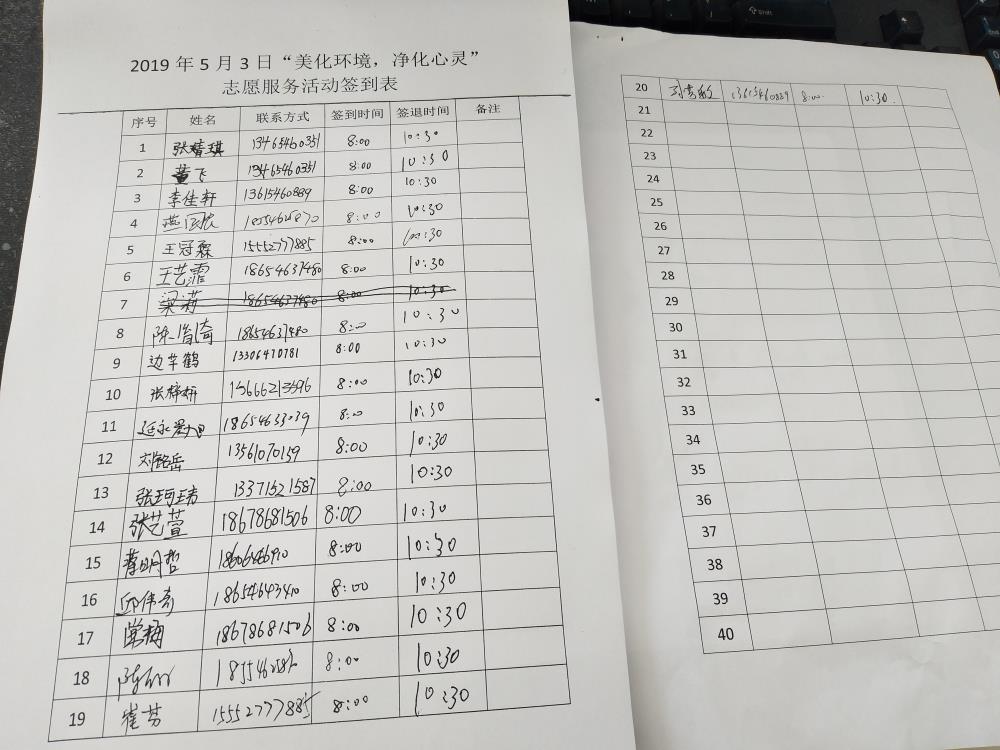 2019 年 5 月 3 日“美化环境，净化心灵”
志愿服务活动签到表
序号 姓名 联系方式 签到时间 签退时间 备注
1 张精琪 13465460351 8:00 10:30
2 董飞 13465460351 8:00 10:30
3 李佳轩 13615460889 8:00 10:30
4 8:00 10:30
5 王冠霖 15552777885 8:00 10:30
6 王艺霏 18654637480 8:00 10:30
7 梁莉 18654637480 8:00 10:30
8 18654637480 8:00 10:30
9 边芊鹤 13306470781 8:00 10:30
10 8:00 10:30
11 18654633039 8:00 10:30
12 刘铭岳 13561070159 8:00 10:30
13 张珂玮 13371521587 8:00 10:30
14 张艺萱 18678681506 8:00 10:30
15 8:00 10:30
16 邱伟奇 18654643410 8:00 10:30
17 常梅 18678681506 8:00 10:30
18 8:00 10:30
19 崔芬 15552777885 8:00 10:30
20 13615460889 8:00 10:30
21
22
23
24
25
26
27
28
29
30
31
32
33
34
35
36
37
38
39
40
Shift